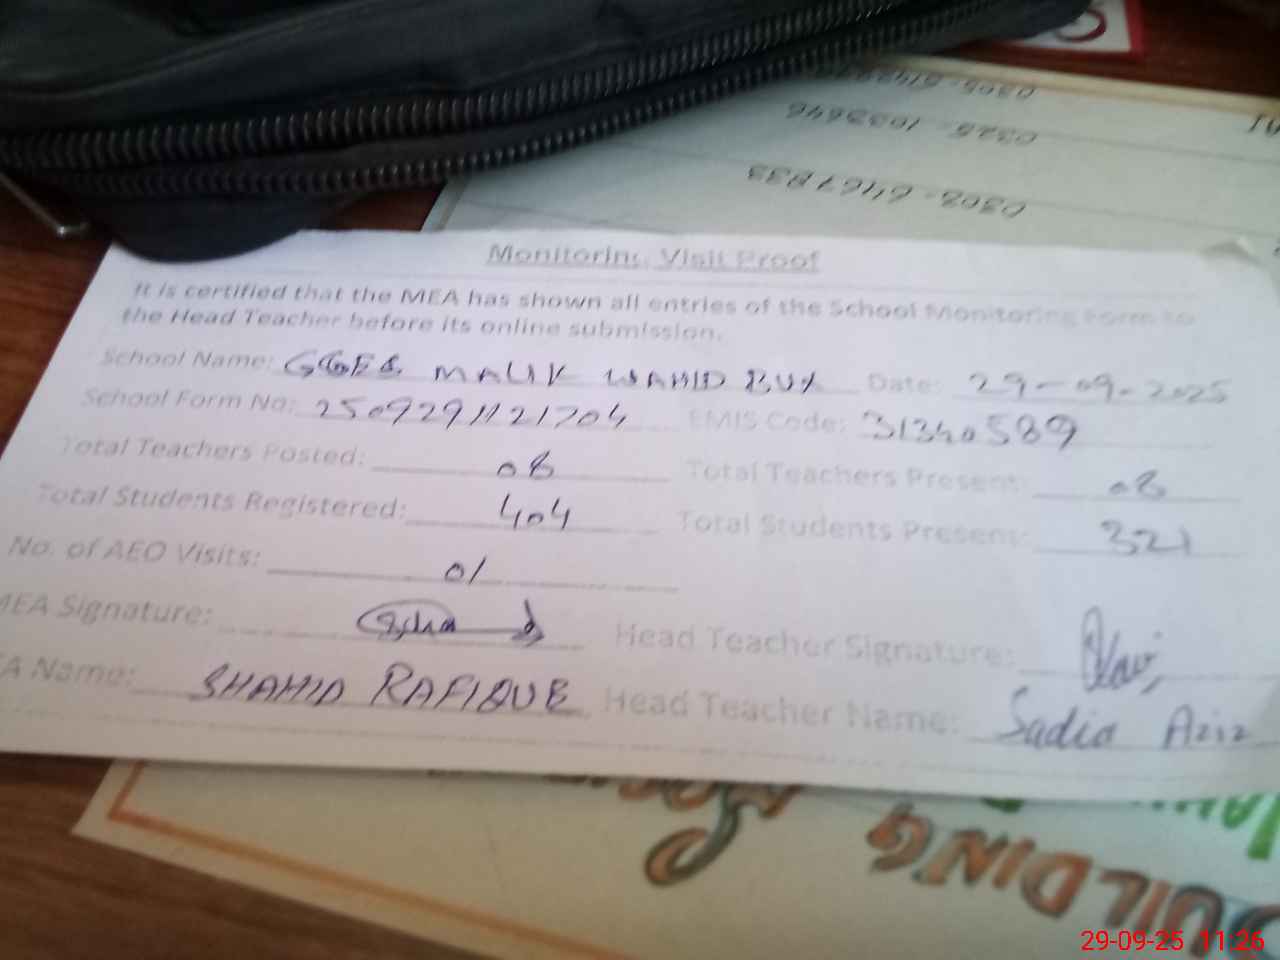 0305-
0325-1033646
0303-6467833
Monitoring Visit Proof
It is certified that the MEA has shown all entries of the School Monitoring Form to
the Head Teacher before its online submission.
School Name: GGES MALIK WAHID BUX Date: 29-09-2025
School Form No: 2509291121704 EMIS Code: 31340589
Total Teachers Posted: 08 Total Teachers Present: 08
Total Students Registered: 404 Total Students Present: 321
No. of AEO Visits: 01
MEA Signature: Head Teacher Signature:
A Name: SHAHID RAFIQUE Head Teacher Name: Sadia Aziz
BUILDING
29-09-25 11:26